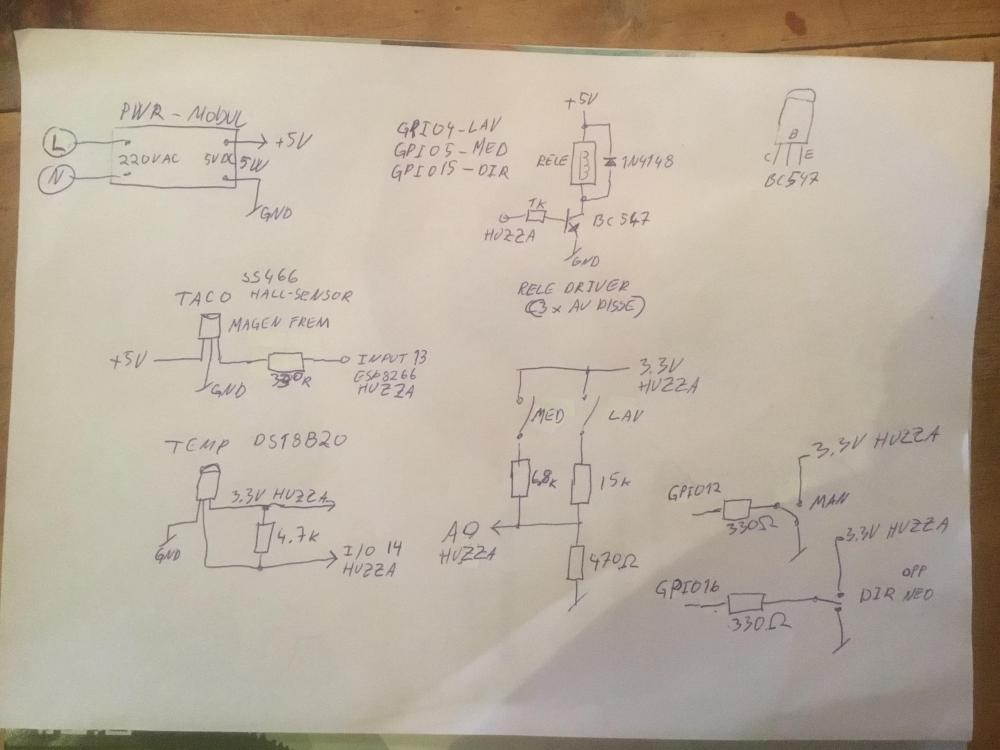 PWR-MODUL
L
N
220VAC
5VDC
5W
+5V
GND
GPIO4-LAV
GPIO5-MED
GPIO15-DIR
+5V
RELE
1N4148
1K
HUZZA
BC547
GND
RELE DRIVER
(3x AV DISSE)
B
C
E
BC547
SS466
TACO HALL-SENSOR
MAGEN FREM
+5V
GND
330R
INPUT 13
ESP8266
HUZZA
TEMP DS18B20
3.3V HUZZA
GND
4.7K
I/O 14
HUZZA
3.3V
HUZZA
MED
LAV
6.8K
15K
A0
HUZZA
470Ω
3.3V HUZZA
GPIO12
330Ω
MAN
3.3V HUZZA
GPIO16
330Ω
OPP
DIR NED